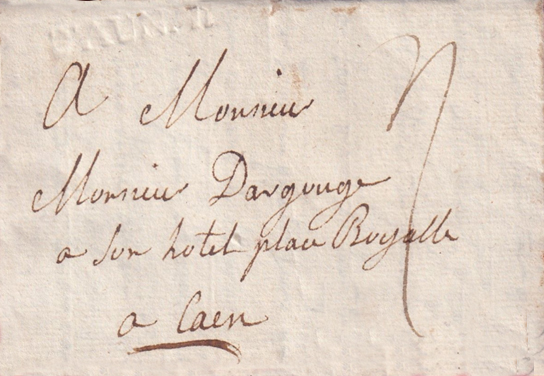 A Monsieur
Monsieur Dargouge
a son hotel place Royalle
a Caen